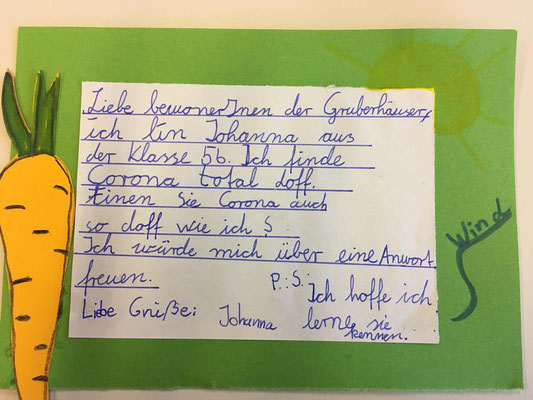 Liebe bewonerInnen der Gruberhäuser,
ich bin Johanna aus
der Klasse 5b. Ich finde
Corona total doff.
Finen Sie Corona auch
so doff wie ich ?
Ich würde mich über eine Anwort
freuen.
Liebe Grüße: Johanna
P.:S.: Ich hoffe ich
lerne sie
kennen.
Wind